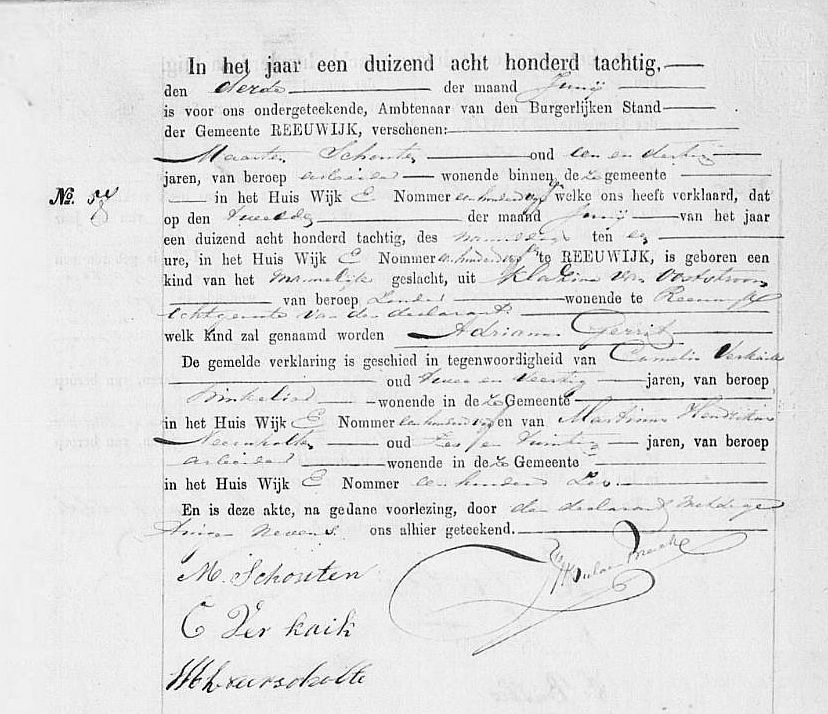 In het jaar een duizend acht honderd tachtig,
den derde der maand Junij
is voor ons ondergeteekende, Ambtenaar van den Burgerlijken Stand
der Gemeente REEUWIJK, verschenen:
Maarten Schouten oud een en dertig
jaren, van beroep arbeider wonende binnen deze gemeente
No. 57
in het Huis Wijk E Nommer een honderd vijf welke ons heeft verklaard, dat
op den tweede der maand Junij van het jaar
een duizend acht honderd tachtig, des namiddags ten
ure, in het Huis Wijk E Nommer een honderd vijf te REEUWIJK, is geboren een
kind van het mannelijk geslacht, uit Klasina van Oostroom
van beroep zonder wonende te Reeuwijk
Echtgenoote van den declarant
welk kind zal genaamd worden Adrianus Gerrit
De gemelde verklaring is geschied in tegenwoordigheid van Cornelis Verkaik
oud twee en veertig jaren, van beroep
Winkelier wonende in deze Gemeente
in het Huis Wijk E Nommer een honderd en van Martinus Hendrikus
oud zes en twintig jaren, van beroep
arbeider wonende in deze Gemeente
in het Huis Wijk E Nommer een honderd zes
En is deze akte, na gedane voorlezing, door den declarant beide
nevens ons alhier geteekend.
M. Schouten
C Verkaik